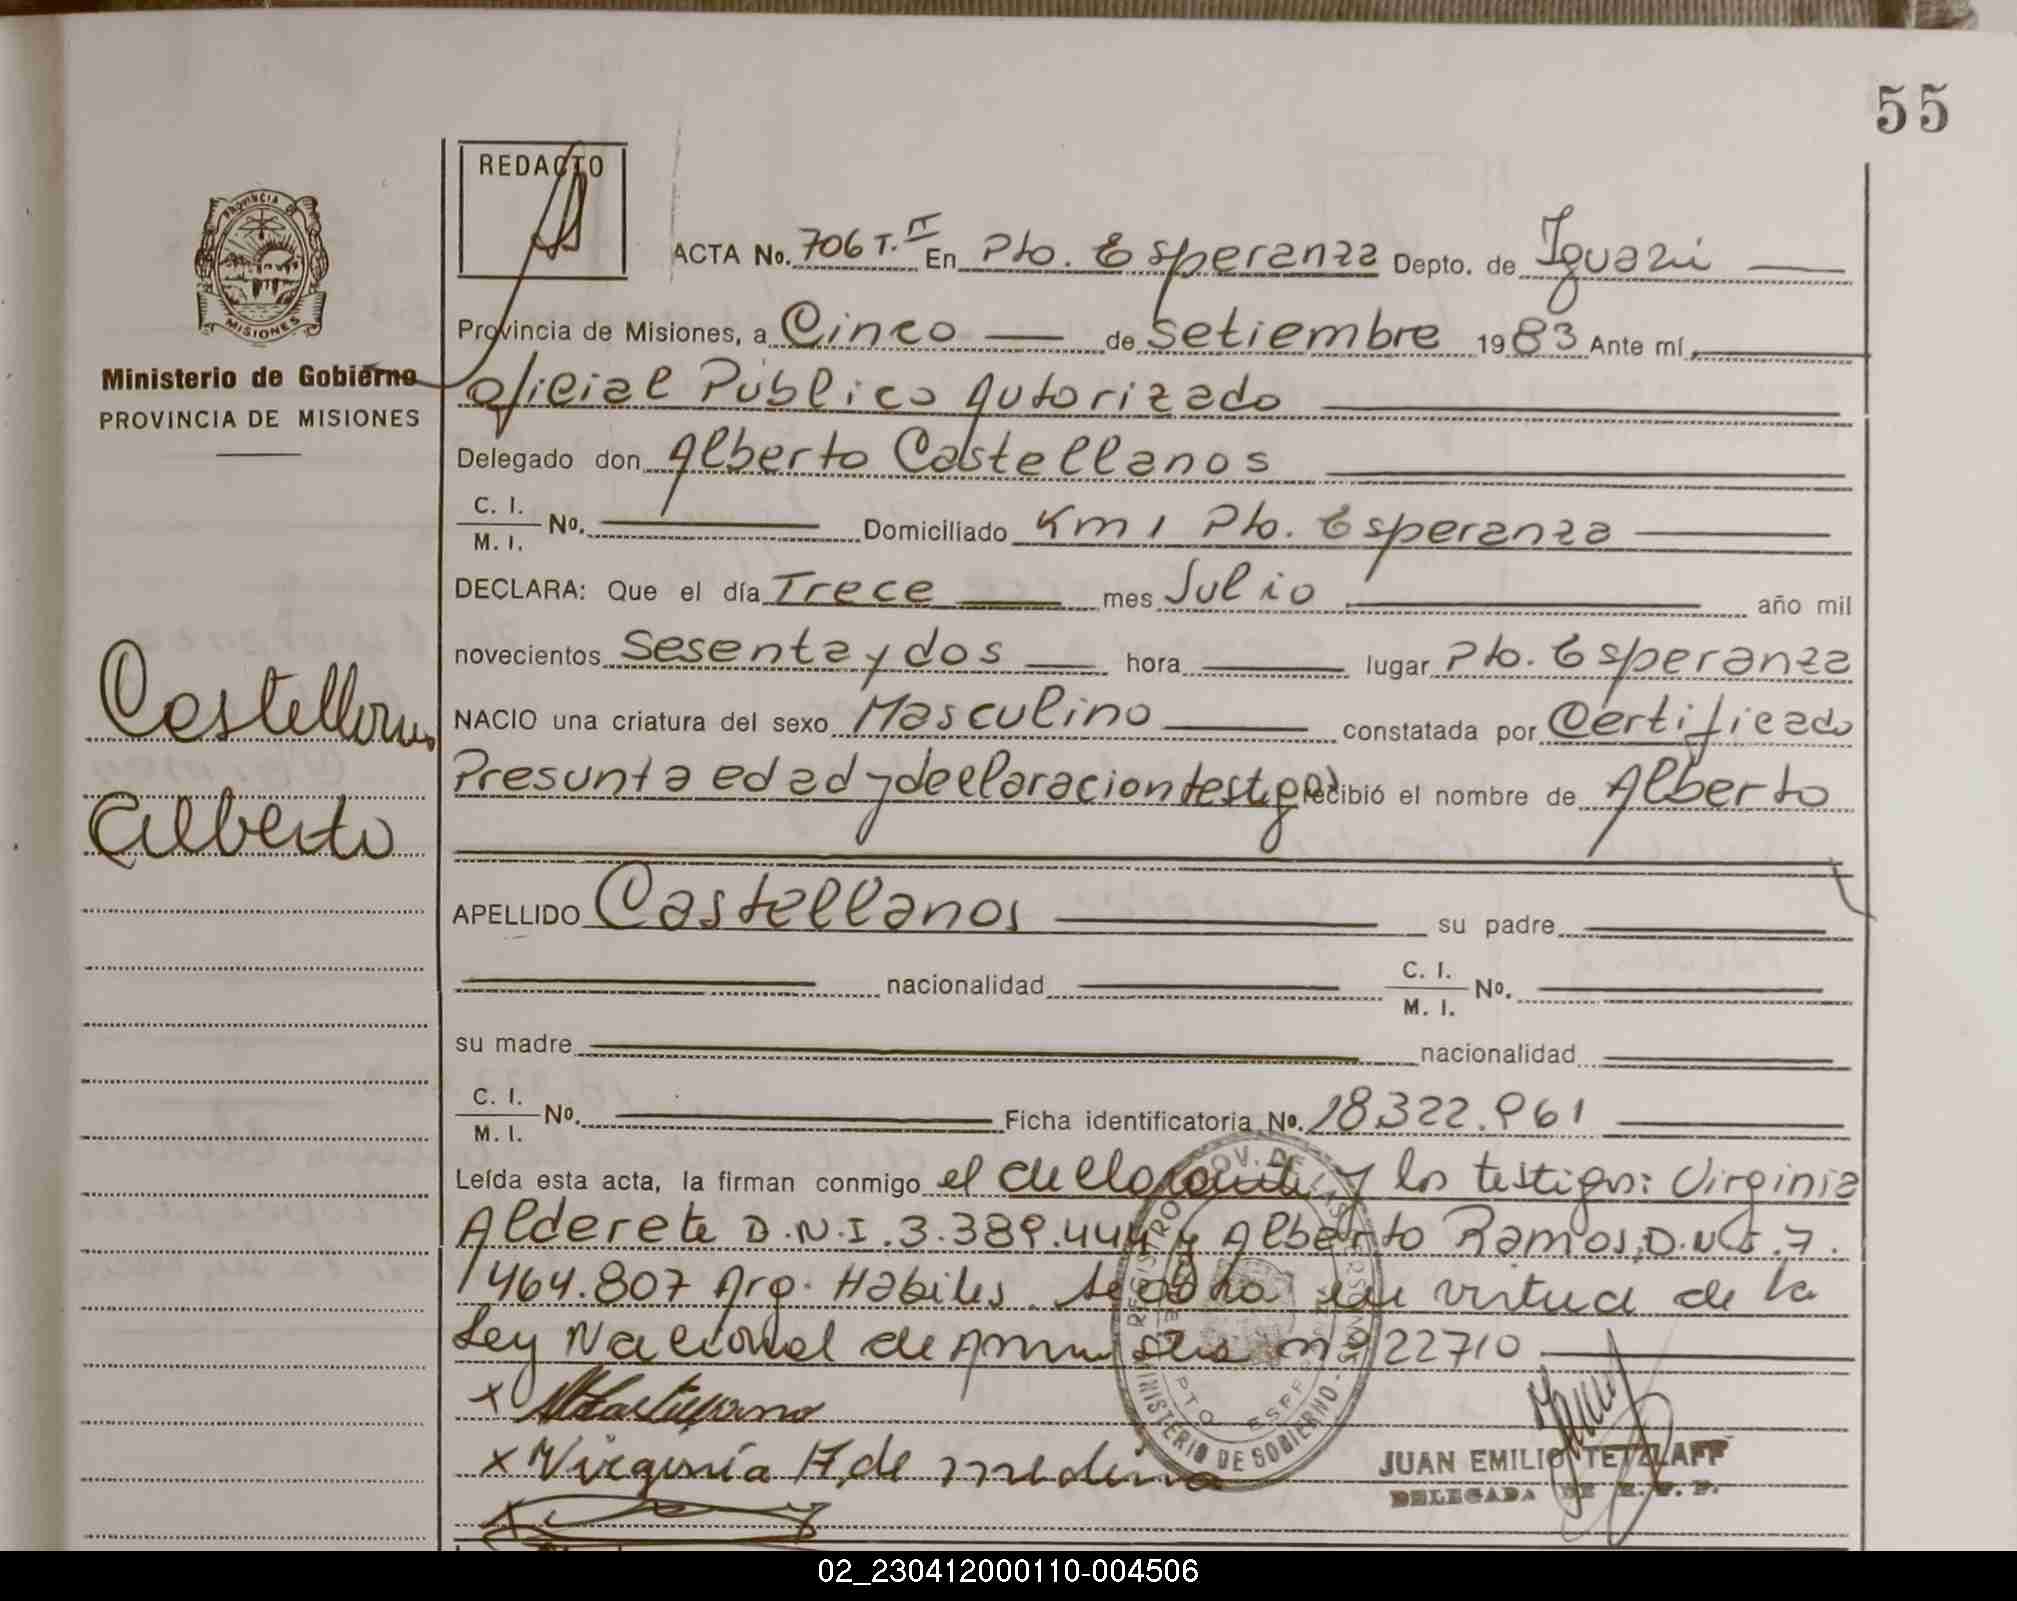 55
REDACTO
PROVINCIA DE
MISIONES
Ministerio de Gobierno
PROVINCIA DE MISIONES
ACTA No. 706 T. II En Pto. Esperanza Depto. de Iguazú
Provincia de Misiones, a Cinco de Setiembre 1983 Ante mí,
oficial Público Autorizado
Delegado don Alberto Castellanos
C. I.
M. I. No. Domiciliado Km 1 Pto. Esperanza
DECLARA: Que el día Trece mes Julio año mil
novecientos Sesenta y dos hora lugar Pto. Esperanza
Castellanos
NACIO una criatura del sexo Masculino constatada por Certificado
Presunta edad y declaracion testigo recibió el nombre de Alberto
Alberto
APELLIDO Castellanos su padre
nacionalidad C. I.
M. I. No.
su madre nacionalidad
C. I.
M. I. No. Ficha identificatoria No. 18.322.961
Leída esta acta, la firman conmigo el declarante y los testigos: Virginia
Alderete D.N.I. 3.389.444 y Alberto Ramos, D.N.I. 7.
464.807 Arg. Habiles. Se labra en virtud de la
Ley Nacional de Amnistia nº 22710
x
x Virginia A. de medina
x
REGISTRO PROV. DE LAS PERSONAS
MINISTERIO DE GOBIERNO
PTO ESPE
JUAN EMILIO TETZLAFF
DELEGADA DE R. P. P.
02_230412000110-004506